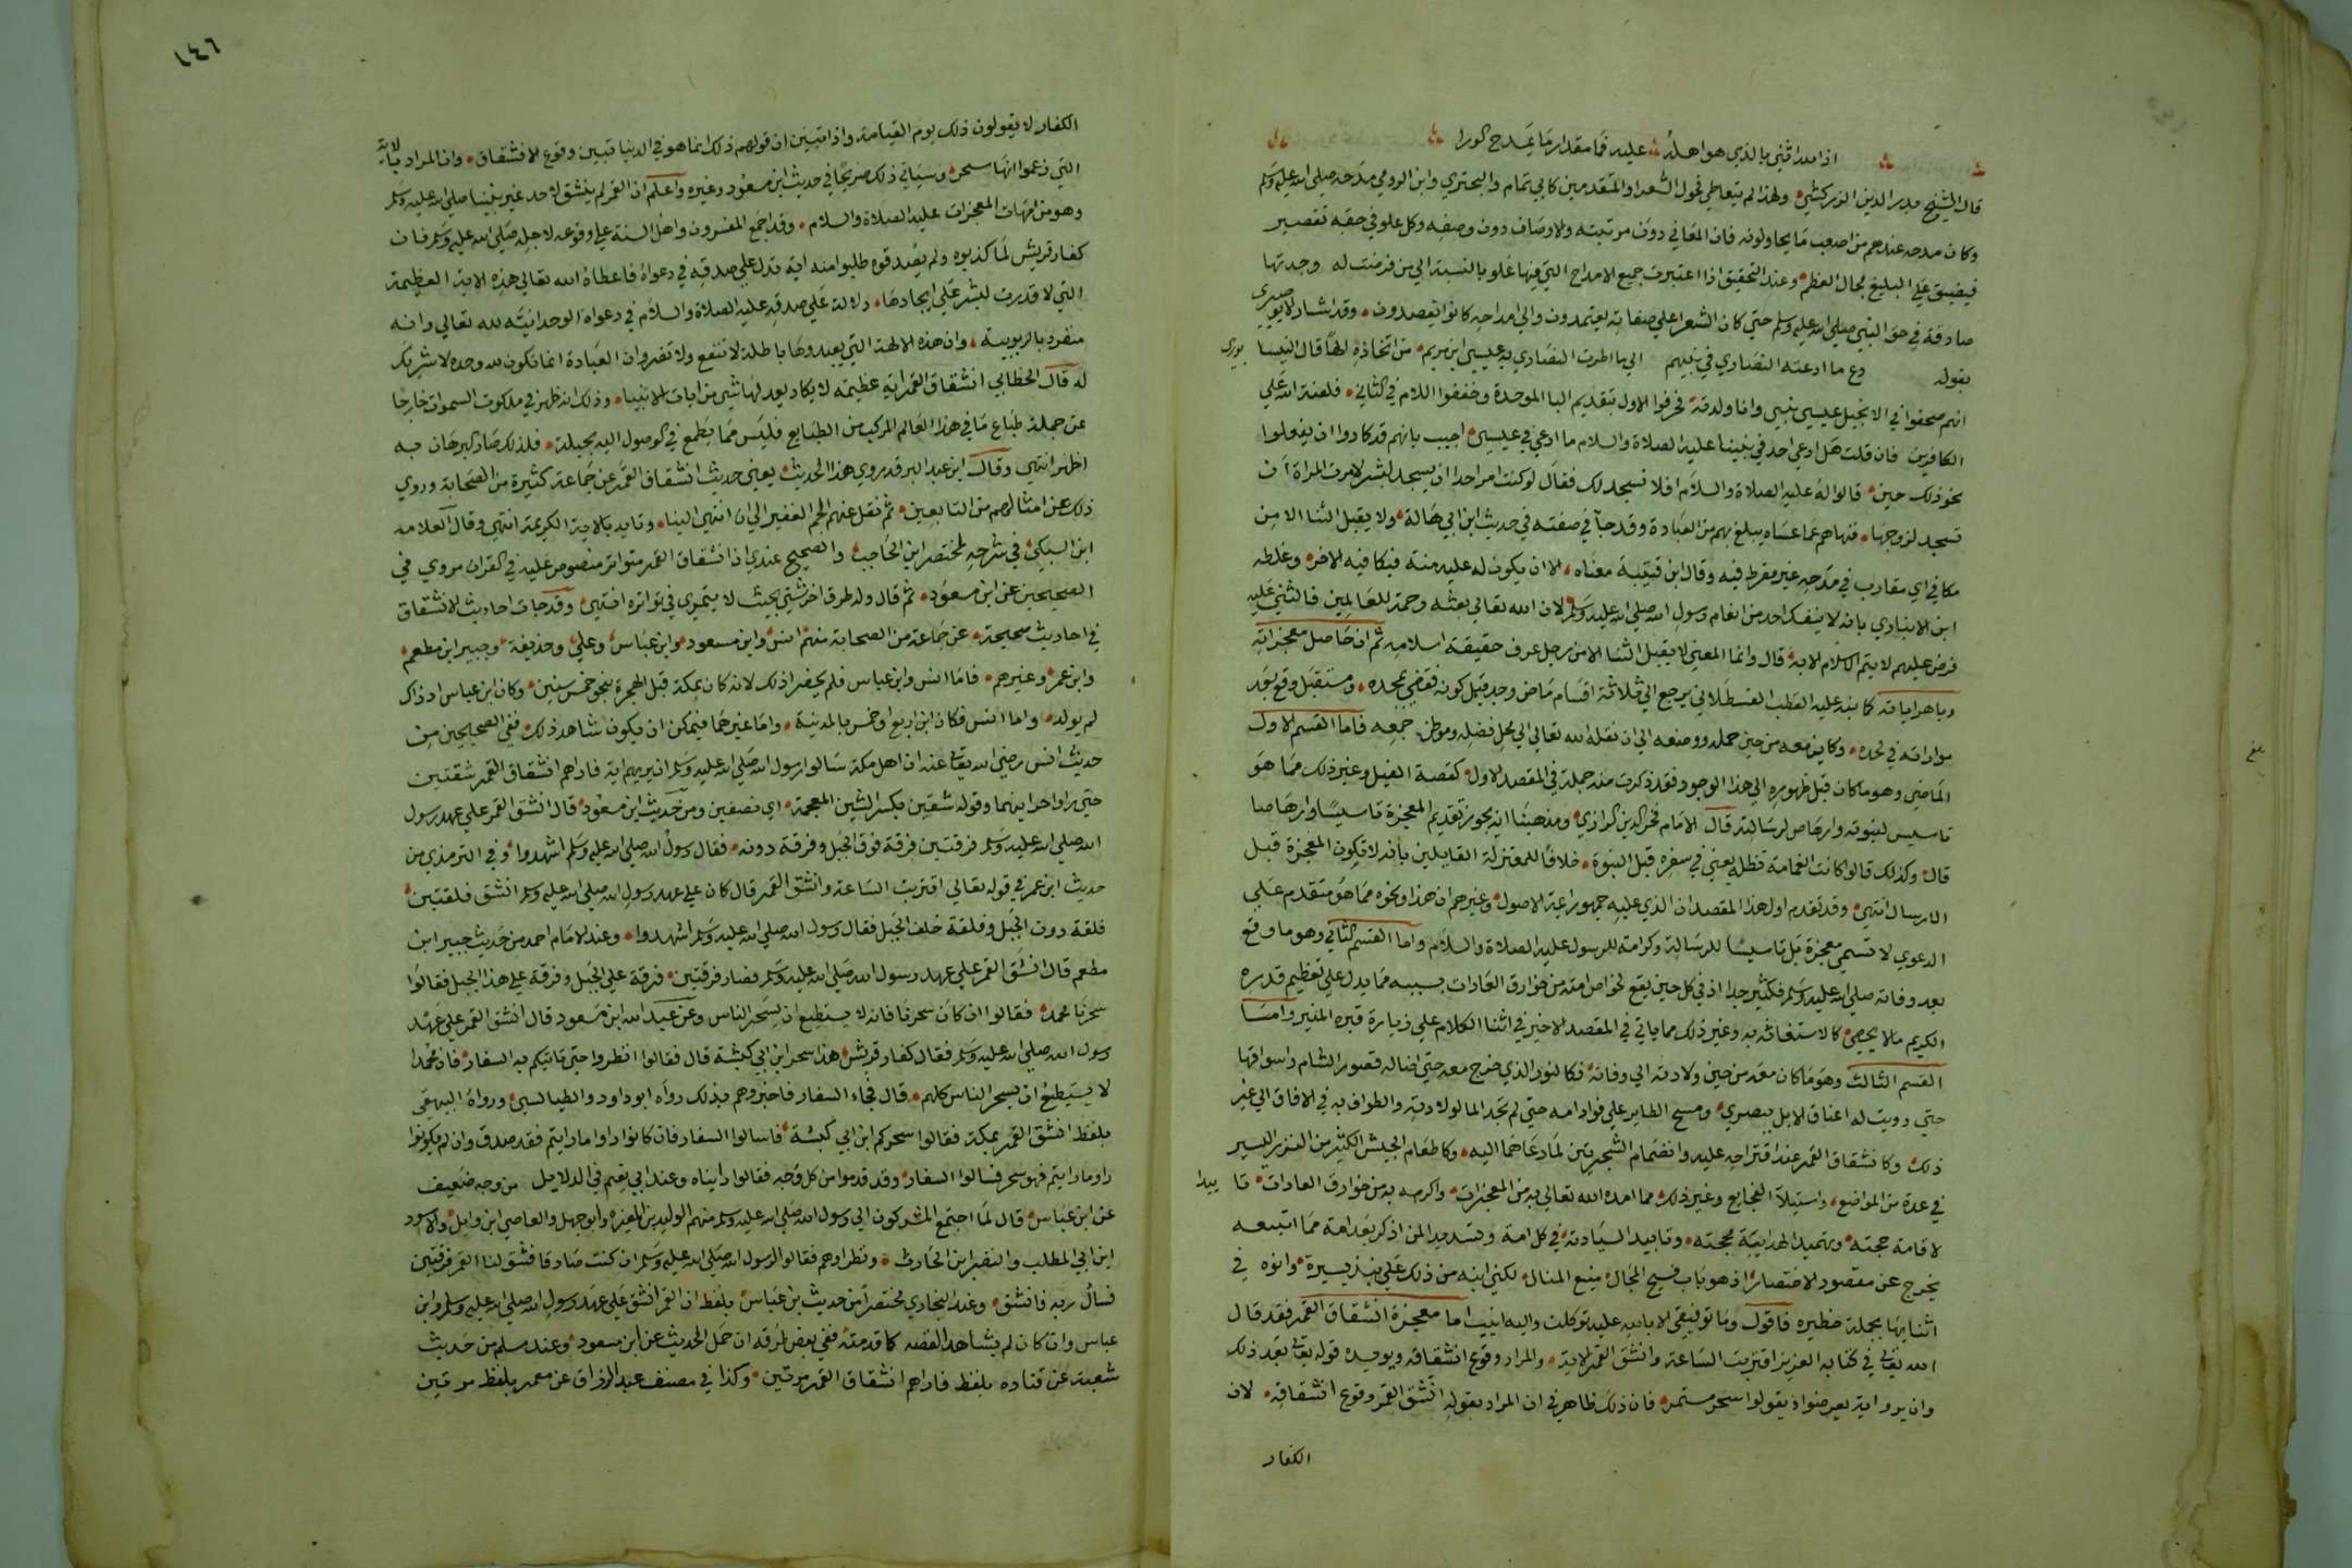 اذا الله اثنى بالذي هو اهله عليه فما مقدار ما يمدح الورا
قال الشيخ بدر الدين الزركشي ولهذا لم يتعاطى فحول الشعراء المتقدمين كابي تمام والبحتري وابن الرومي مدحه صلى الله عليه وسلم
وكان مدحه عندهم من اصعب ما يحاولونه فان المعاني دون مرتبته والاوصاف دون وصفه وكل علو في حقه تقصير
فيضيق على البليغ مجال النظم وعند التحقيق اذا اعتبرت جميع الامداح التي فيها غلو بالنسبة الى من فرضت له وجدتها
صادقة في حق النبي صلى الله عليه وسلم حتى كان الشعرا على صفاته يعتمدون والى امداحه كانوا يقصدون وقد اشار الابوصيري
بقوله دع ما ادعته النصارى في نبيهم الى ما اطرت النصارى به عيسى ابن مريم من اتخاذه الها قال النيسا بوري
انهم صحفوا في الانجيل عيسى نبيي وانا ولدته فحرفوا الاول بتقديم البا الموحدة وخففوا اللام في الثاني فلعنة الله على
الكافرين فان قلت هل ادعى احد في نبينا عليه الصلاة والسلام ما ادعي في عيسى اجيب بانهم قد كادوا ان يفعلوا
نحو ذلك حين قالوا له عليه الصلاة والسلام افلا نسجد لك فقال لو كنت امر احدا ان يسجد لبشر لامرت المراة ان
تسجد لزوجها فنهاهم عما عساه يبلغ بهم من العبادة وقد جآ في صفته في حديث ابن ابي هالة ولا يقبل الثنا الا من
مكافي اي مقارب في مدحه غير مفرط فيه وقال ابن قتيبة معناه الا ان يكون له عليه منة فيكافيه الاخر وغلطه
ابن الانباري بانه لا ينفك احد من انعام رسول الله صلى الله عليه وسلم لان الله تعالى بعثه رحمة للعالمين فالثنى عليه
فرض عليهم لا يتم الاسلام الا به قال وانما المعنى لا يقبل الثنا الا من رجل عرف حقيقة اسلامه ثم ان حاصل معجزاته
وباهر اياته كما نبه عليه القطب القسطلاني يرجع الى ثلاثة اقسام ماض وجد قبل كونه فقضي بمجده ومستقبل وقع بعد
مواراته في لحده وكاين معه من حين حمله ووضعه الى ان نقله الله تعالى الى محل فضله وموطن جمعه فاما القسم الاول
الماضي وهو ما كان قبل ظهوره الى هذا الوجود فقد ذكرت منه جملة في المقصد الاول كقصة الفيل وغير ذلك مما هو
تاسيس لنبوته وارهاص لرسالته قال الامام فخر الدين الرازي ومذهبنا انه يجوز تقديم المعجزة تاسيسا وارهاصا
قال وكذلك قالوا كانت الغمامة تظله يعني في سفره قبل النبوة خلافا للمعتزلة القايلين بانه لا تكون المعجزة قبل
الارسال انتهى وقد تقدم اول هذا المقصد ان الذي عليه جمهور ايمة الاصول وغيرهم ان هذا ونحوه مما هو متقدم على
الدعوى لا تسمى معجزة بل تاسيسا للرسالة وكرامة للرسول عليه الصلاة والسلام واما القسم الثاني وهو ما وقع
بعد وفاته صلى الله عليه وسلم فكثير جدا اذ في كل حين يقع لخواص امته من خوارق العادات بسببه مما يدل على تعظيم قدره
الكريم ما لا يحصى كالاستغاثة به وغير ذلك مما ياتي في المقصد الاخير في اثنا الكلام على زيارة قبره المنير واما
القسم الثالث وهو ما كان معه من حين ولادته الى وفاته فكالنور الذي خرج معه حتى اضا له قصور الشام واسواقها
حتى رويت له اعناق الابل ببصرى ومسح الطاير على فواد امه حتى لم تجد الما لولادته والطواف به في الافاق الى غير
ذلك وكانشقاق القمر عند اقتراحه عليه وانضمام الشجرتين لما دعاهما اليه وكاطعام الجيش الكثير من النزر اليسير
في عدة من المواضع واستيلآ الفجايع وغير ذلك مما امده الله تعالى به من المعجزات واكرمه به من خوارق العادات تا ييدا
لاقامة حجته وتمهيد الهداية محجته وتاييد السيادته في كل امة وتسديد المن اذكر بعد امة مما اتتبعه
يخرج عن مقصود الاختصار اذ هو باب فسيح المجال منيع المنال لكني انبه من ذلك على نبذ يسيرة وانوه في
اثنايها بجملة خطيره فاقول وما توفيقي الا بالله عليه توكلت واليه انيب اما معجزة انشقاق القمر فقد قال
الله تعالى في كتابه العزيز اقتربت الساعة وانشق القمر الاية والمراد وقوع انشقاقه ويويده قوله تعالى بعد ذلك
وان يروا اية يعرضوا ويقولوا سحر مستمر فان ذلك ظاهر في ان المراد بقوله انشق القمر وقوع انشقاقه لان
الكفار
بلغ
١٤٦
الكفار لا يقولون ذلك يوم القيامة واذا تبين ان قولهم ذلك انما هو في الدنيا تبين وقوع الانشقاق وان المراد بالاية
التي زعموا انها سحر وسياتي ذلك صريحا في حديث ابن مسعود وغيره واعلم ان القمر لم ينشق لاحد غير نبينا صلى الله عليه وسلم
وهو من امهات المعجزات عليه الصلاة والسلام وقد اجمع المفسرون واهل السنة على وقوعه لاجله صلى الله عليه وسلم فان
كفار قريش لما كذبوه ولم يصدقوه طلبوا منه اية تدل على صدقه في دعواه فاعطاه الله تعالى هذه الاية العظيمة
التي لا قدرت لبشر على ايجادها دلالة على صدقه عليه الصلاة والسلام في دعواه الوحدانية لله تعالى وانه
منفرد بالربوبية وان هذه الالهة التي يعبدوها باطلة لا تنفع ولا تضر وان العبادة انما تكون لله وحده لا شريك
له قال الخطابي انشقاق القمر اية عظيمة لا يكاد يعد لها شي من ايات الانبيا وذلك انه ظهر في ملكوت السموات خارجا
عن جملة طباع ما في هذا العالم المركب من الطبايع فليس مما يطمع في الوصول اليه بحيلة فلذلك صار البرهان به
اظهر انتهى وقال ابن عبد البر قد روي هذا الحديث يعني حديث انشقاق القمر عن جماعة كثيرة من الصحابة وروى
ذلك عن امثالهم من التابعين ثم نقل عنهم الجم الغفير الى ان انتهى الينا وتايد بالاية الكريمة انتهى وقال العلامه
ابن السبكي في شرحه لمختصر ابن الحاجب والصحيح عندي ان انشقاق القمر متواتر منصوص عليه في القران مروي في
الصحيحين عن ابن مسعود ثم قال وله طرق اخر شتى بحيث لا يتمرى في تواتره انتهى وقد جات احاديث الانشقاق
في احاديث صحيحة عن جماعة من الصحابة منهم انس وابن مسعود وابن عباس وعلي وحذيفة وجبير ابن مطعم
وابن عمر وغيرهم فاما انس وابن عباس فلم يحضرا ذلك لانه كان بمكة قبل الهجرة بنحو خمس سنين وكان ابن عباس اذ ذاك
لم يولد واما انس فكان ابن اربع او خمس بالمدينة واما غيرهما فيمكن ان يكون شاهد ذلك ففي الصحيحين من
حديث انس رضي الله تعالى عنه ان اهل مكة سالوا رسول الله صلى الله عليه وسلم ان يريهم اية فاراهم انشقاق القمر شقتين
حتى راوا حرا بينهما وقوله شقين بكسر الشين المعجمة اي نصفين ومن حديث ابن مسعود قال انشق القمر على عهد رسول
الله صلى الله عليه وسلم فرقتين فرقة فوق الجبل وفرقة دونه فقال رسول الله صلى الله عليه وسلم اشهدوا وفي الترمذي من
حديث ابن عمر في قوله تعالى اقتربت الساعة وانشق القمر قال كان على عهد رسول الله صلى الله عليه وسلم انشق فلقتين
فلقة دون الجبل وفلقة خلف الجبل فقال رسول الله صلى الله عليه وسلم اشهدوا وعند الامام احمد من حديث جبير ابن
مطعم قال انشق القمر على عهد رسول الله صلى الله عليه وسلم فصار فرقتين فرقة على الجبل وفرقة على هذا الجبل فقالوا
سحرنا محمد فقالوا ان كان سحرنا فانه لا يستطيع ان يسحر الناس وعن عبد الله ابن مسعود قال انشق القمر على عهد
رسول الله صلى الله عليه وسلم فقال كفار قريش هذا سحر ابن ابي كبشة قال فقالوا انظروا حتى تاتيكم به السفار فان محمدا
لا يستطيع ان يسحر الناس كلهم قال فجاء السفار فاخبروهم بذلك رواه ابو داود والطيالسي ورواه البيهقي
بلفظ انشق القمر بمكة فقالوا سحركم ابن ابي كبشة فاسالوا السفار فان كانوا راوا ما رايتم فقد صدق وان لم يكونوا
راوما رايتم فهو سحر فسالوا السفار وقد قدموا من كل وجه فقالوا رايناه وعند ابي نعيم في الدلايل من وجه ضعيف
عن ابن عباس قال لما اجتمع المشركون الى رسول الله صلى الله عليه وسلم منهم الوليد بن المغيره وابوجهل والعاصي ابن وايل والاسود
ابن ابي المطلب والنضر ابن الحارث ونظراوهم فقالوا لرسول الله صلى الله عليه وسلم ان كنت صادقا فشق لنا القمر فرقتين
فسال ربه فانشق وعند البخاري مختصرا من حديث بن عباس بلفظ ان القمر انشق على عهد رسول الله صلى الله عليه وسلم وابن
عباس وان كان لم يشاهد القصه كما قدمته ففي بعض طرقه ان حمل الحديث عن ابن مسعود وعند مسلم من حديث
شعبة عن قتاده بلفظ فاراهم انشقاق القمر مرتين وكذا في مصنف عبد الرزاق عن معمر بلفظ مرتين